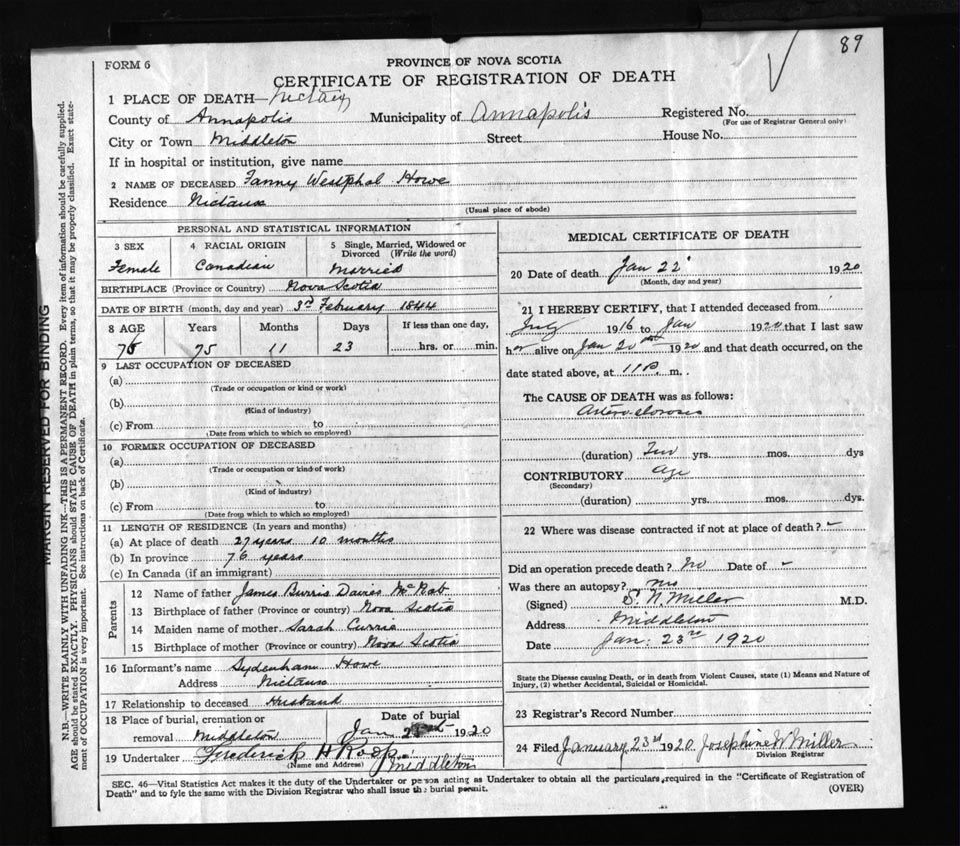 89
FORM 6
PROVINCE OF NOVA SCOTIA
CERTIFICATE OF REGISTRATION OF DEATH
1 PLACE OF DEATH—
County of Annapolis Municipality of Annapolis Registered No.
(For use of Registrar General only)
City or Town Middleton Street House No.
If in hospital or institution, give name
2 NAME OF DECEASED Fanny Westphal Howe
Residence Nictaux
(Usual place of abode)
PERSONAL AND STATISTICAL INFORMATION
3 SEX 4 RACIAL ORIGIN 5 Single, Married, Widowed or
Divorced (Write the word)
Female Canadian Married
BIRTHPLACE (Province or Country) Nova Scotia
DATE OF BIRTH (month, day and year) 3rd February 1844
8 AGE Years Months Days If less than one day,
76 75 11 23 hrs. or min.
9 LAST OCCUPATION OF DECEASED
(a)
(Trade or occupation or kind or work)
(b)
(Kind of industry)
(c) From to
(Date from which to which so employed)
10 FORMER OCCUPATION OF DECEASED
(a)
(Trade or occupation or kind of work)
(b)
(Kind of industry)
(c) From to
(Date from which to which so employed)
11 LENGTH OF RESIDENCE (In years and months)
(a) At place of death 27 years 10 months
(b) In province 76 years
(c) In Canada (if an immigrant)
Parents
12 Name of father James Burris Davies McNab
13 Birthplace of father (Province or country) Nova Scotia
14 Maiden name of mother Sarah Currie
15 Birthplace of mother (Province or country) Nova Scotia
16 Informant's name Sydenham Howe
Address Nictaux
17 Relationship to deceased Husband
18 Place of burial, cremation or Date of burial
removal Middleton Jan 1920
19 Undertaker Frederick H Roop
(Name and Address) Middleton
MEDICAL CERTIFICATE OF DEATH
20 Date of death Jan 22 1920
(Month, day and year)
21 I HEREBY CERTIFY, that I attended deceased from
July 1916 to Jan 1920 that I last saw
her alive on Jan 20 1920 and that death occurred, on the
date stated above, at 11 P. m.
The CAUSE OF DEATH was as follows:
(duration) yrs. mos. dys
CONTRIBUTORY Age
(Secondary)
(duration) yrs. mos. dys.
22 Where was disease contracted if not at place of death? -
Did an operation precede death? no Date of -
Was there an autopsy? no
(Signed) S. N. Miller M.D.
Address Middleton
Date Jan. 23rd 1920
State the Disease causing Death, or in death from Violent Causes, state (1) Means and Nature of
Injury, (2) whether Accidental, Suicidal or Homicidal.
23 Registrar's Record Number
24 Filed January 23rd 1920 Josephine W Miller
Division Registrar
SEC. 46—Vital Statistics Act makes it the duty of the Undertaker or person acting as Undertaker to obtain all the particulars required in the "Certificate of Registration of
Death" and to fyle the same with the Division Registrar who shall issue the burial permit.
(OVER)
MARGIN RESERVED FOR BINDING
N.B.—WRITE PLAINLY WITH UNFADING INK—THIS IS A PERMANENT RECORD. Every item of information should be carefully supplied.
AGE should be stated EXACTLY. PHYSICIANS should STATE CAUSE OF DEATH in plain terms, so that it may be properly classified. Exact state-
ment of OCCUPATION is very important. See instructions on back of Certificate.